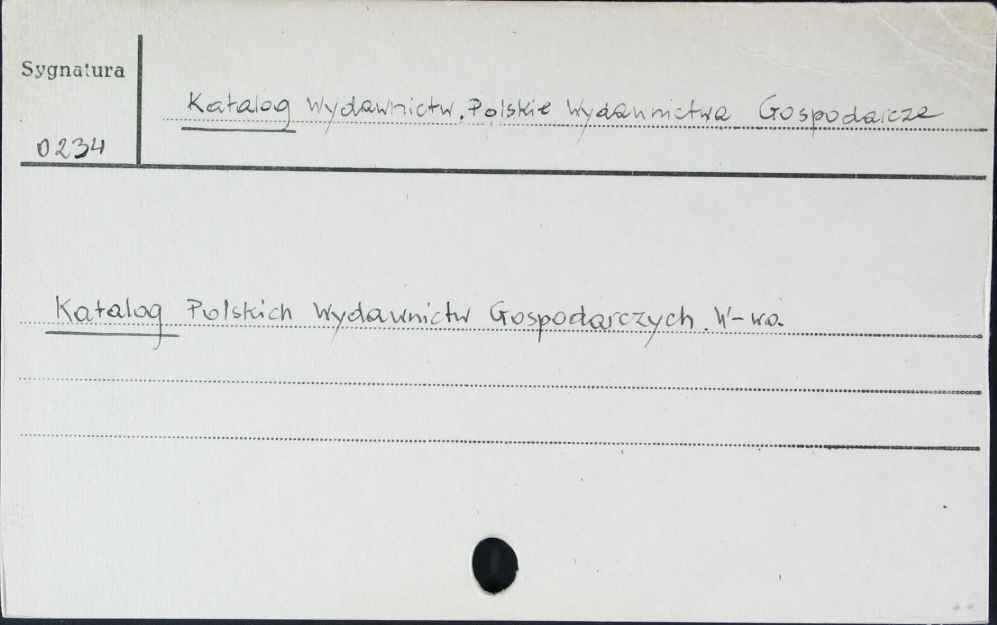 Sygnatura
Katalog Wydawnictw. Polskie Wydawnictwa Gospodarcze
0234
Katalog Polskich Wydawnictw Gospodarczych. W-wa.